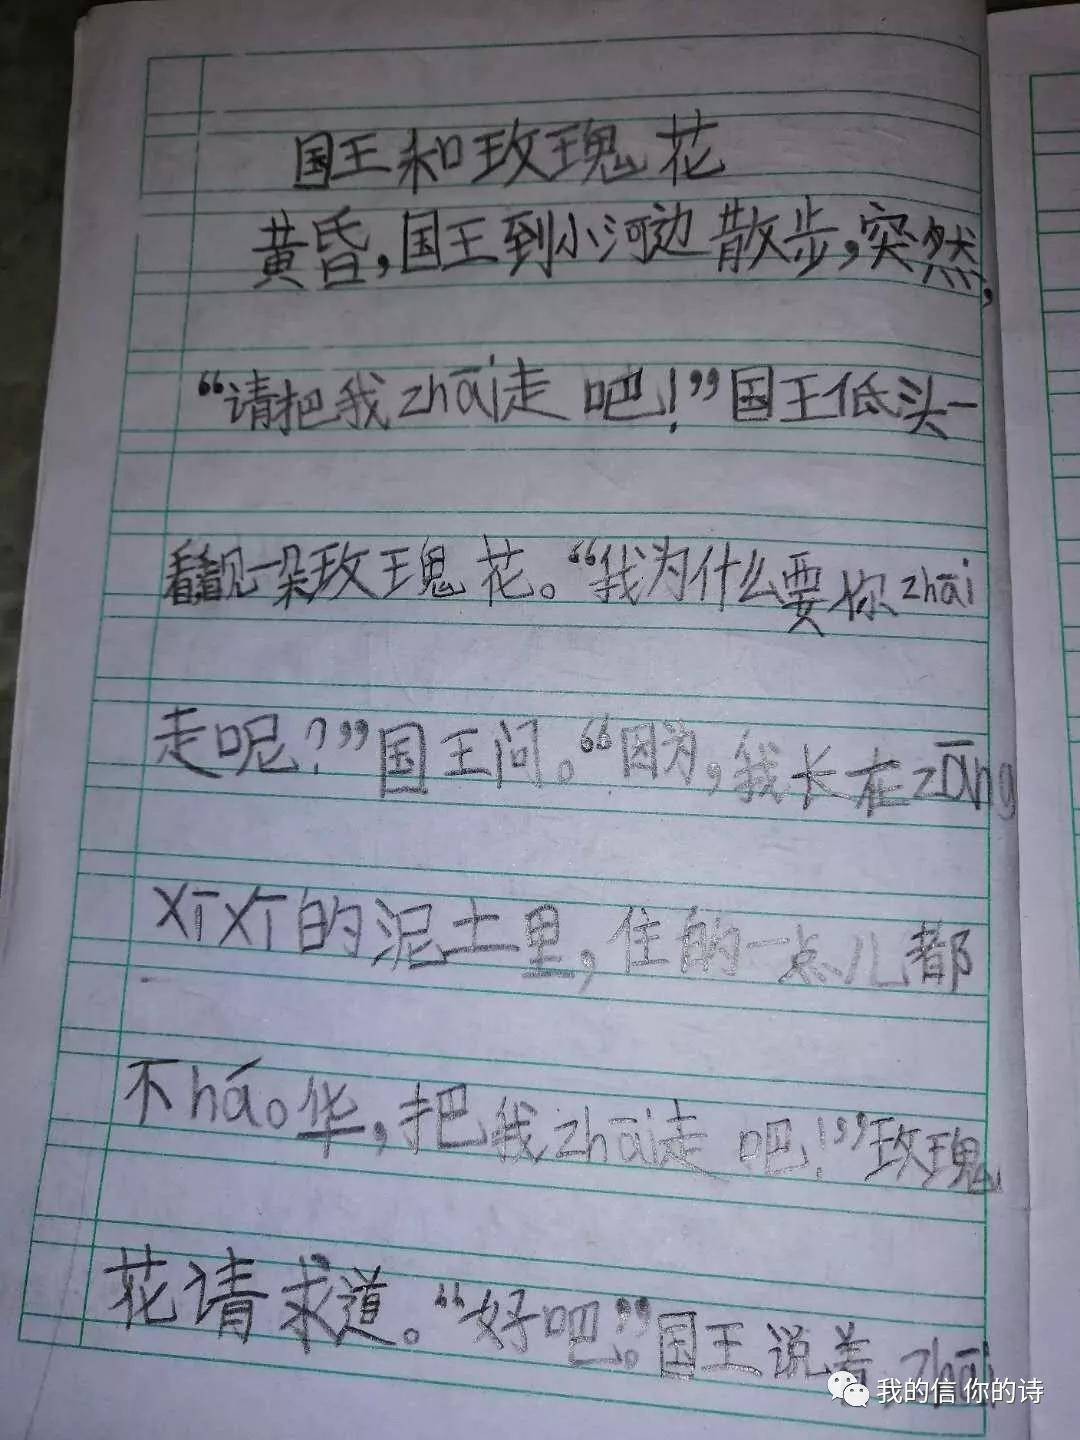 国王和玫瑰花
黄昏,国王到小河边散步,突然,
“请把我zhāi走吧!”国王低头一
看,看见一朵玫瑰花。“我为什么要你zhāi
走呢?”国王问。“因为,我长在zāng
xīxī的泥土里,住的一点儿都
不háo华,把我zhāi走吧!”玫瑰
花请求道。“好吧。”国王说着,zhāi
我的信 你的诗